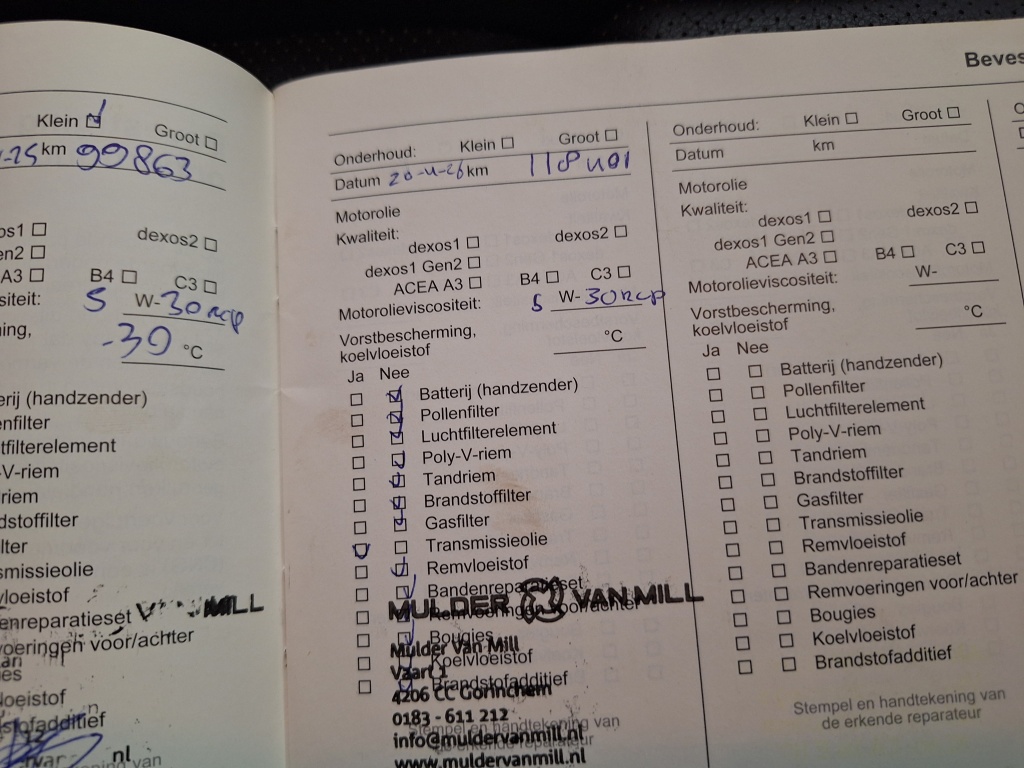 Klein Groot
km 99863
dexos2
Gen2
A3 B4 C3
5 W-30
-30 °C
(handzender)
V-riem
VAN MILL
voor/achter
nl
Onderhoud: Klein Groot
Datum 20-4-26 km 118401
Motorolie
Kwaliteit:
dexos1 dexos2
dexos1 Gen2
ACEA A3 B4 C3
Motorolieviscositeit: 5 W-30
Vorstbescherming,
koelvloeistof °C
Ja Nee
Batterij (handzender)
Pollenfilter
Luchtfilterelement
Poly-V-riem
Tandriem
Brandstoffilter
Gasfilter
Transmissieolie
Remvloeistof
Bandenreparatieset
MULDER VAN MILL
Remvoeringen voor/achter
Bougies
Mulder Van Mill
Koelvloeistof
Vaart 1
Brandstofadditief
4206 CC Gorinchem
0183 - 611 212
Stempel en handtekening van
info@muldervanmill.nl
de erkende reparateur
www.muldervanmill.nl
Onderhoud: Klein Groot
Datum km
Motorolie
Kwaliteit:
dexos1 dexos2
dexos1 Gen2
ACEA A3 B4 C3
Motorolieviscositeit: W-
Vorstbescherming,
koelvloeistof °C
Ja Nee
Batterij (handzender)
Pollenfilter
Luchtfilterelement
Poly-V-riem
Tandriem
Brandstoffilter
Gasfilter
Transmissieolie
Remvloeistof
Bandenreparatieset
Remvoeringen voor/achter
Bougies
Koelvloeistof
Brandstofadditief
Stempel en handtekening van
de erkende reparateur